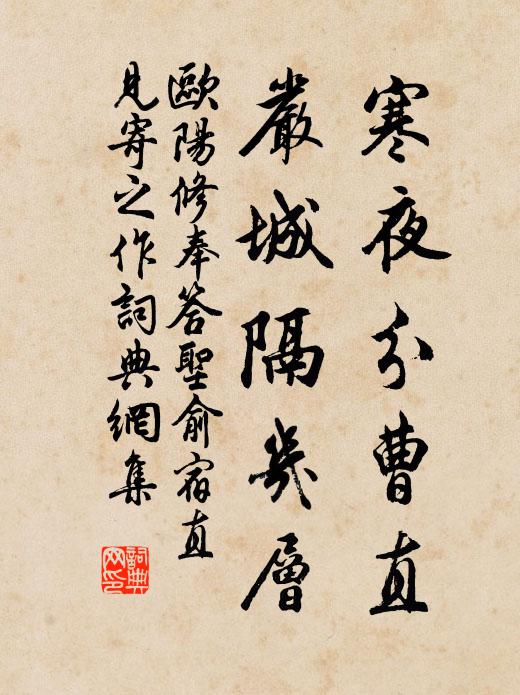 寒夜分曹直
嚴城隔幾層
歐陽修奉答聖俞宿直
見寄之作詞典網集
詞典
网印